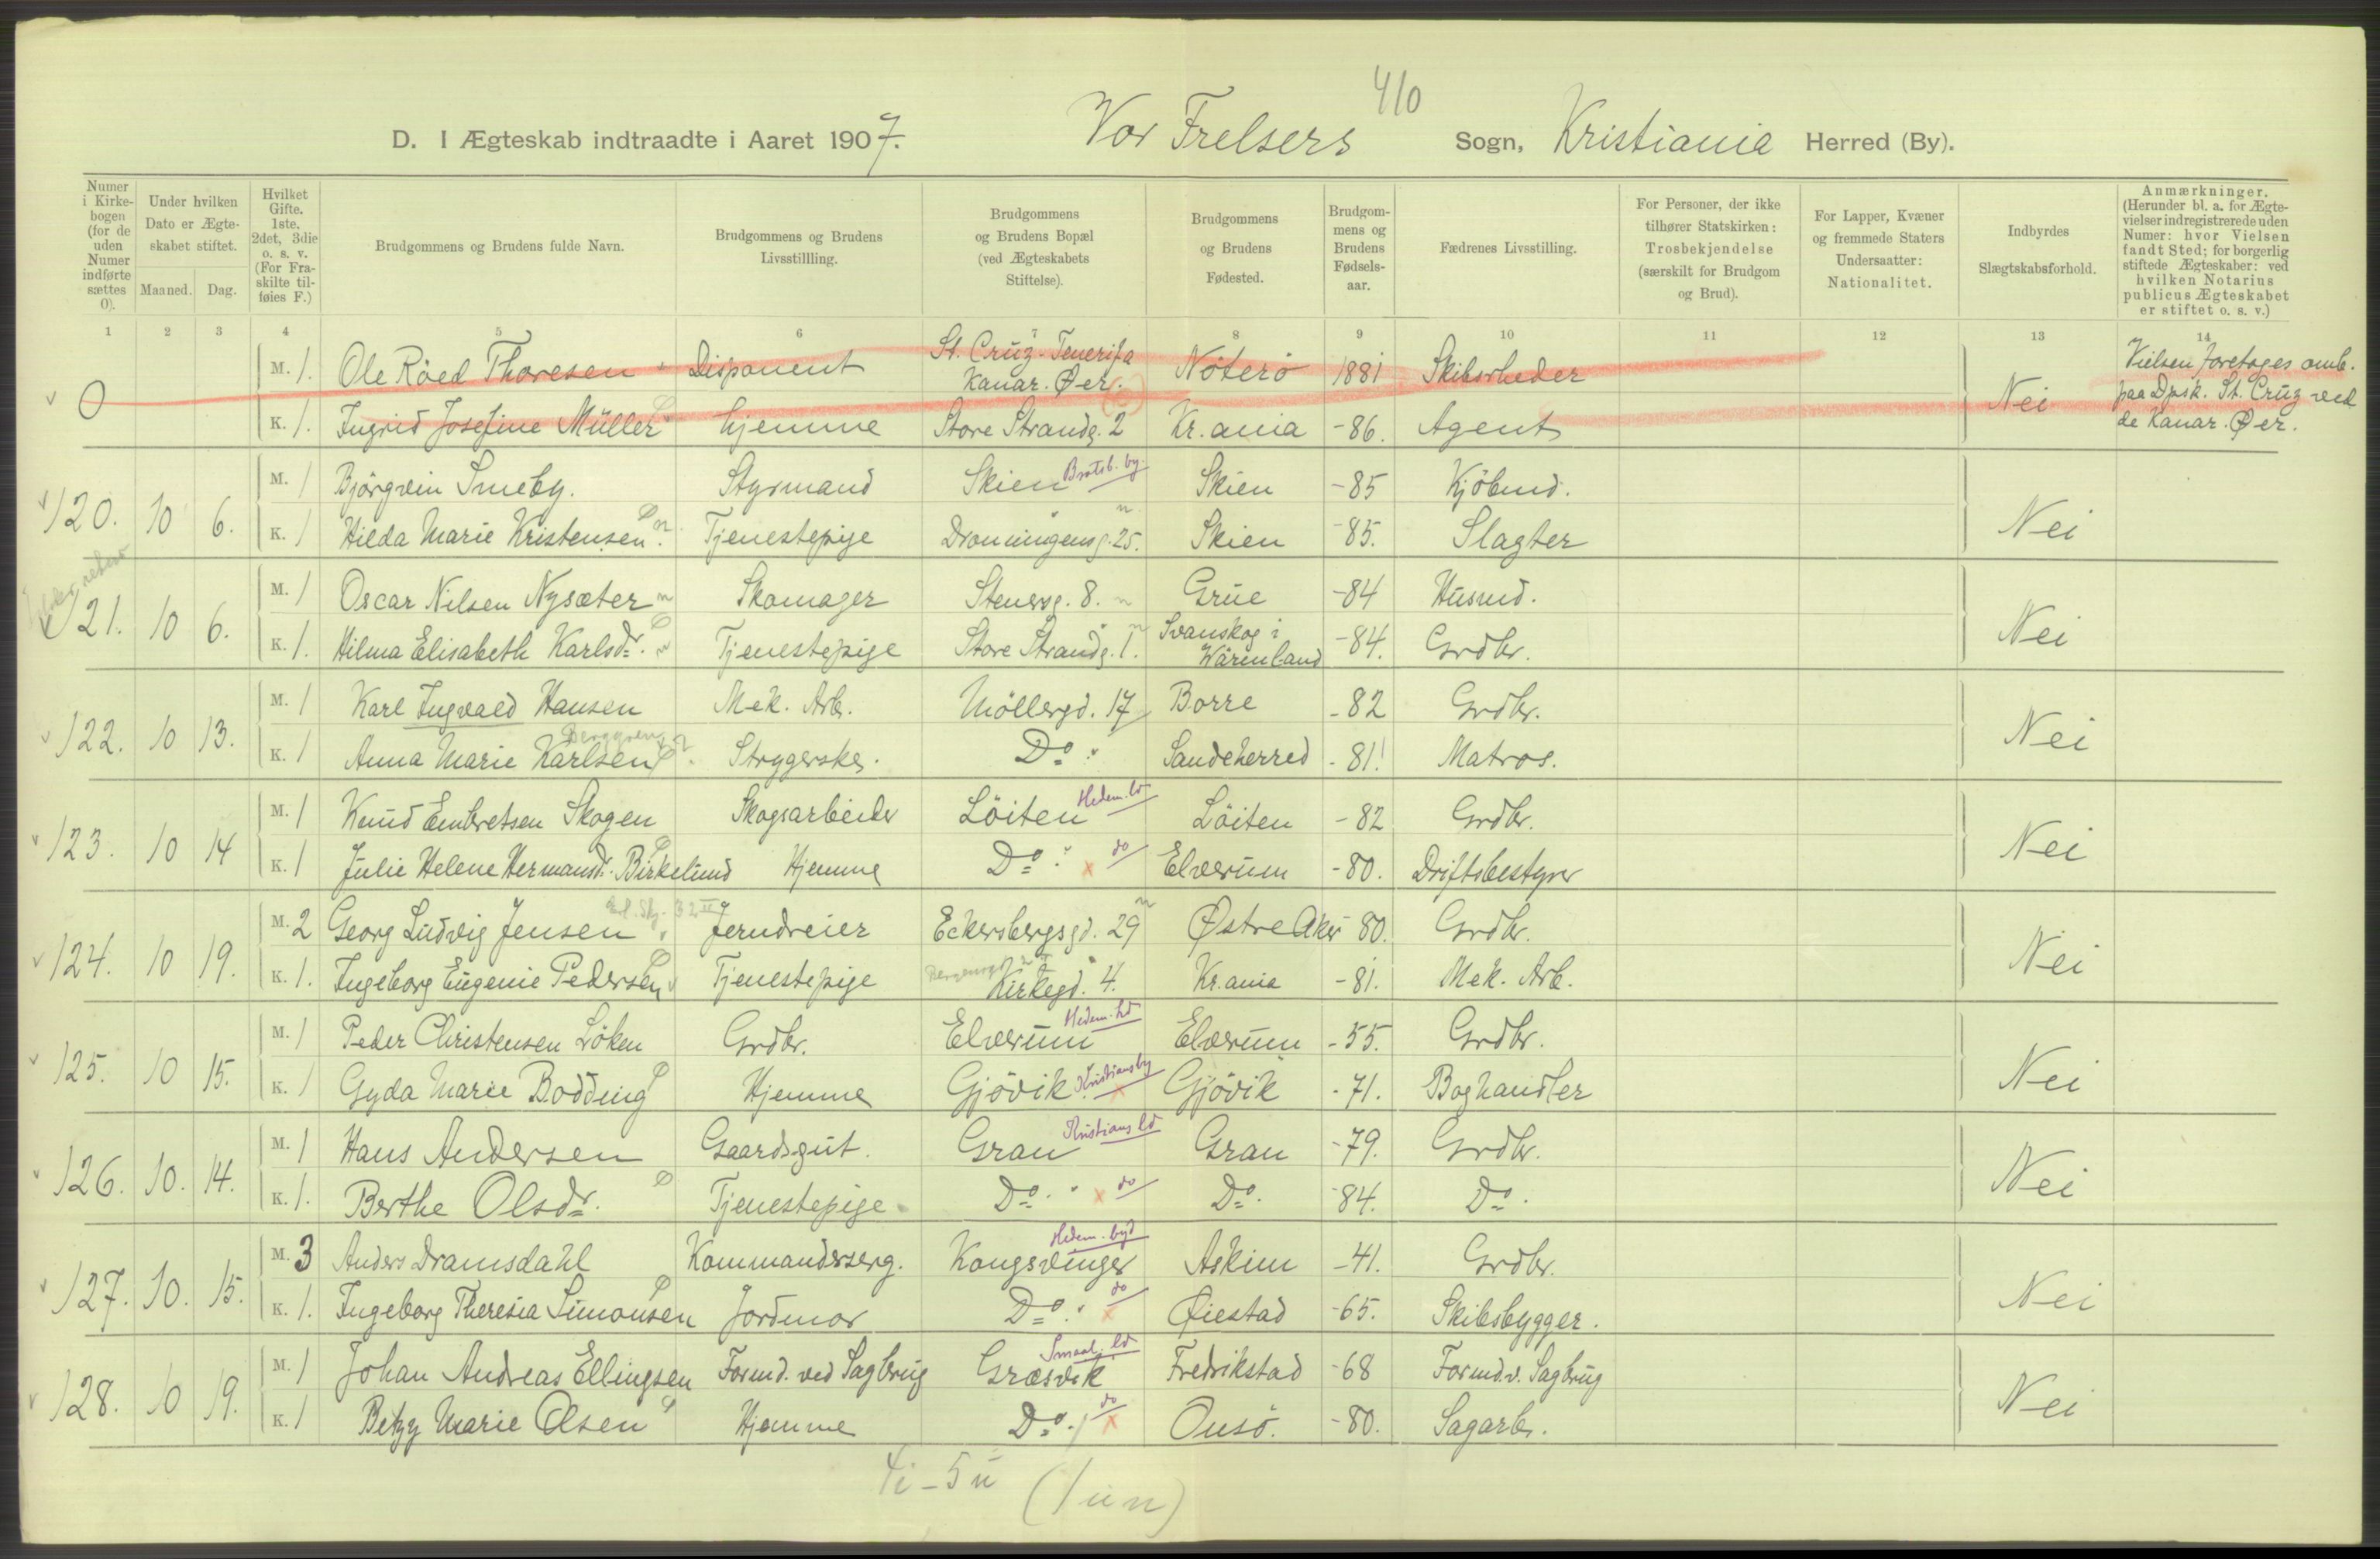 410
D. I Ægteskab indtraadte i Aaret 1907. Vor Frelsers Sogn, Kristiania Herred (By).
Numer i Kirkebogen (for de uden Numer indførte sættes 0).
Under hvilken Dato er Ægteskabet stiftet.
Maaned. Dag.
Hvilket Gifte. 1ste. 2det, 3die o. s. v. (For Fraskilte tilføies F.)
Brudgommens og Brudens fulde Navn.
Brudgommens og Brudens Livsstillling.
Brudgommens og Brudens Bopæl (ved Ægteskabets Stiftelse).
Brudgommens og Brudens Fødested.
Brudgommens og Brudens Fødselsaar.
Fædrenes Livsstilling.
For Personer, der ikke tilhører Statskirken: Trosbekjendelse (særskilt for Brudgom og Brud).
For Lapper, Kvæner og fremmede Staters Undersaatter: Nationalitet.
Indbyrdes Slægtskabsforhold.
Anmærkninger. (Herunder bl. a. for Ægtevielser indregistrerede uden Numer: hvor Vielsen fandt Sted; for borgerlig stiftede Ægteskaber: ved hvilken Notarius publicus Ægteskabet er stiftet o. s. v.)
1 2 3 4 5 6 7 8 9 10 11 12 13 14
M. 1. Ole Röed Thoresen Disponent St. Cruz-Tenerifa Kanar. Øer. Nöterö 1881 Skibsrheder
0 Nei Vielsen foretages omb. paa Dpsk. St. Cruz ved de Kanar. Øer.
K. 1. Ingrid Josefine Müller hjemme Store Strandg. 2 Kr.ania -86. Agent
M. 1 Björgvin Smeby. Styrmand Skien Bratsb. by. Skien -85 Kjöbmd.
120. 10 6. Nei
K. 1 Hilda Marie Kristensen. Tjenestepige Dronningensg. 25. Skien -85. Slagter
M. 1 Oscar Nilsen Nysæter Skomager Stenersg. 8. Grue -84 Husmd.
121. 10 6. Nei
K. 1. Hilma Elisabeth Karlsdr. Tjenestepige Store Strandg. 1. Svanskog i Wärenland -84. Grdbr.
M. 1 Karl Ingvald Hansen Mek. Arb. Möllergd. 17 Borre -82 Grdbr.
122. 10 13. Nei
Berggren
K. 1 Anna Marie Karlsen Strygerske. Do. Sandeherred -81. Matros.
M. 1 Knud Embretsen Skogen Skogsarbeider Löiten Hedem. ld Löiten -82 Grdbr.
123. 10 14 Nei
K. 1 Julie Helene Hermansdr. Birkelund Hjemme Do. do Elverum -80. Driftsbestyrer
M. 2 Georg Ludvig Jensen Jerndreier Eckersbergsgd. 29 Østre Aker 80. Grdbr.
124. 10 19. Nei
K. 1. Ingeborg Eugenie Pedersen Tjenestepige Kirkegd. 4. Kr.ania -81. Mek. Arb.
M. 1 Peder Christensen Löken Grdbr. Elverum Hedem. ld Elverum -55. Grdbr.
125. 10 15. Nei
K. 1 Gyda Marie Bodding Hjemme Gjövik Kristians by Gjövik -71. Boghandler
M. 1 Hans Andersen Gaardsgut. Gran Kristians ld Gran -79. Grdbr.
126. 10. 14. Nei
K. 1. Berthe Olsdr. Tjenestepige Do. do Do. -84. Do.
M. 3 Anders Dramsdahl Kommandersерg. Kongsvinger Hedem. byd Askim -41. Grdbr.
127. 10. 15. Nei
K. 1. Ingeborg Theresia Simonsen Jordmor Do. do Øiestad -65. Skibsbygger.
M. 1 Johan Andreas Ellingsen Formd. ved Sagbrug Græsvik Smaal. ld Fredrikstad -68 Formd. v. Sagbrug
128. 10 19. Nei
K. 1 Betzy Marie Olsen Hjemme Do. do Onsö. -80. Sagarb.
4i - 5u (1un)